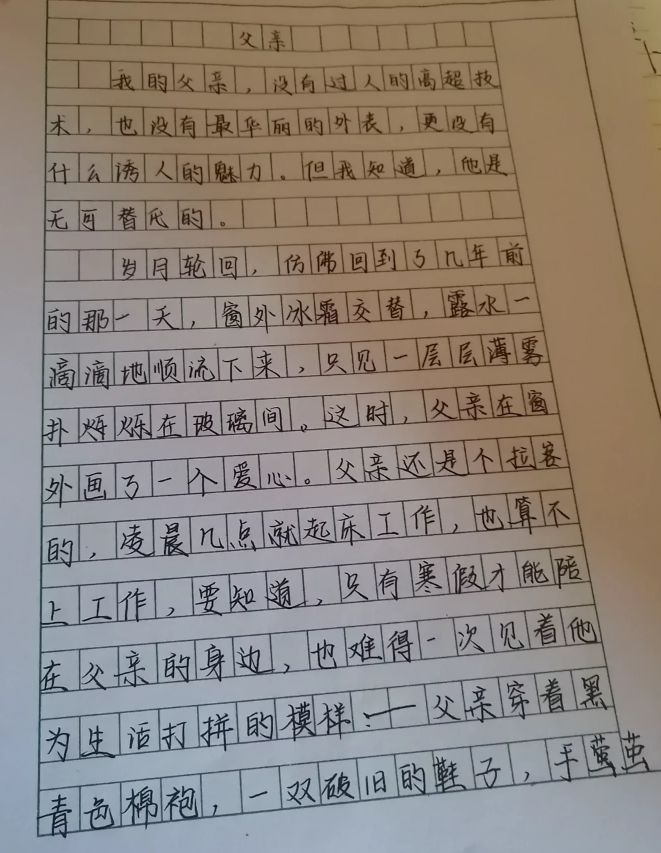 父亲
我的父亲，没有过人的高超技
术，也没有最华丽的外表，更没有
什么诱人的魅力。但我知道，他是
无可替代的。
岁月轮回，仿佛回到了几年前
的那一天，窗外冰霜交替，露水一
滴滴地顺流下来，只见一层层薄雾
扑烁烁在玻璃间。这时，父亲在窗
外画了一个爱心。父亲还是个拉客
的，凌晨几点就起床工作，也算不
上工作，要知道，只有寒假才能陪
在父亲的身边，也难得一次见着他
为生活打拼的模样：——父亲穿着黑
青色棉袍，一双破旧的鞋子，手茧茧